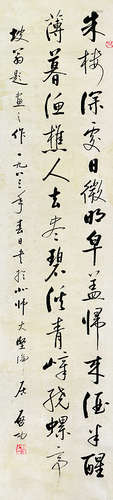 朱楼深处日微明皂盖归来酒半醒
薄暮渔樵人去尽碧溪青嶂绕螺亭
坡翁题画之作一九八三年春日书于小
启功